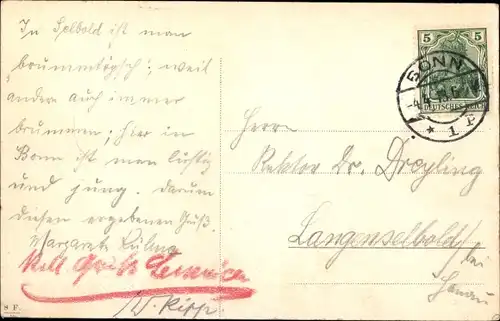 In Selbold ist man
brummtöpsch; weil
andere auch immer
brummen; hier in
Bonn ist man lustig
und jung. darum
diesen ergebenen Gruß.
Margarete
W. Ripp.
S F.
5 5
BONN
DEUTSCHES REICH
* 1 F
Herrn
Rektor Dr. Dreyling
Langenselbold/
bei
Hanau